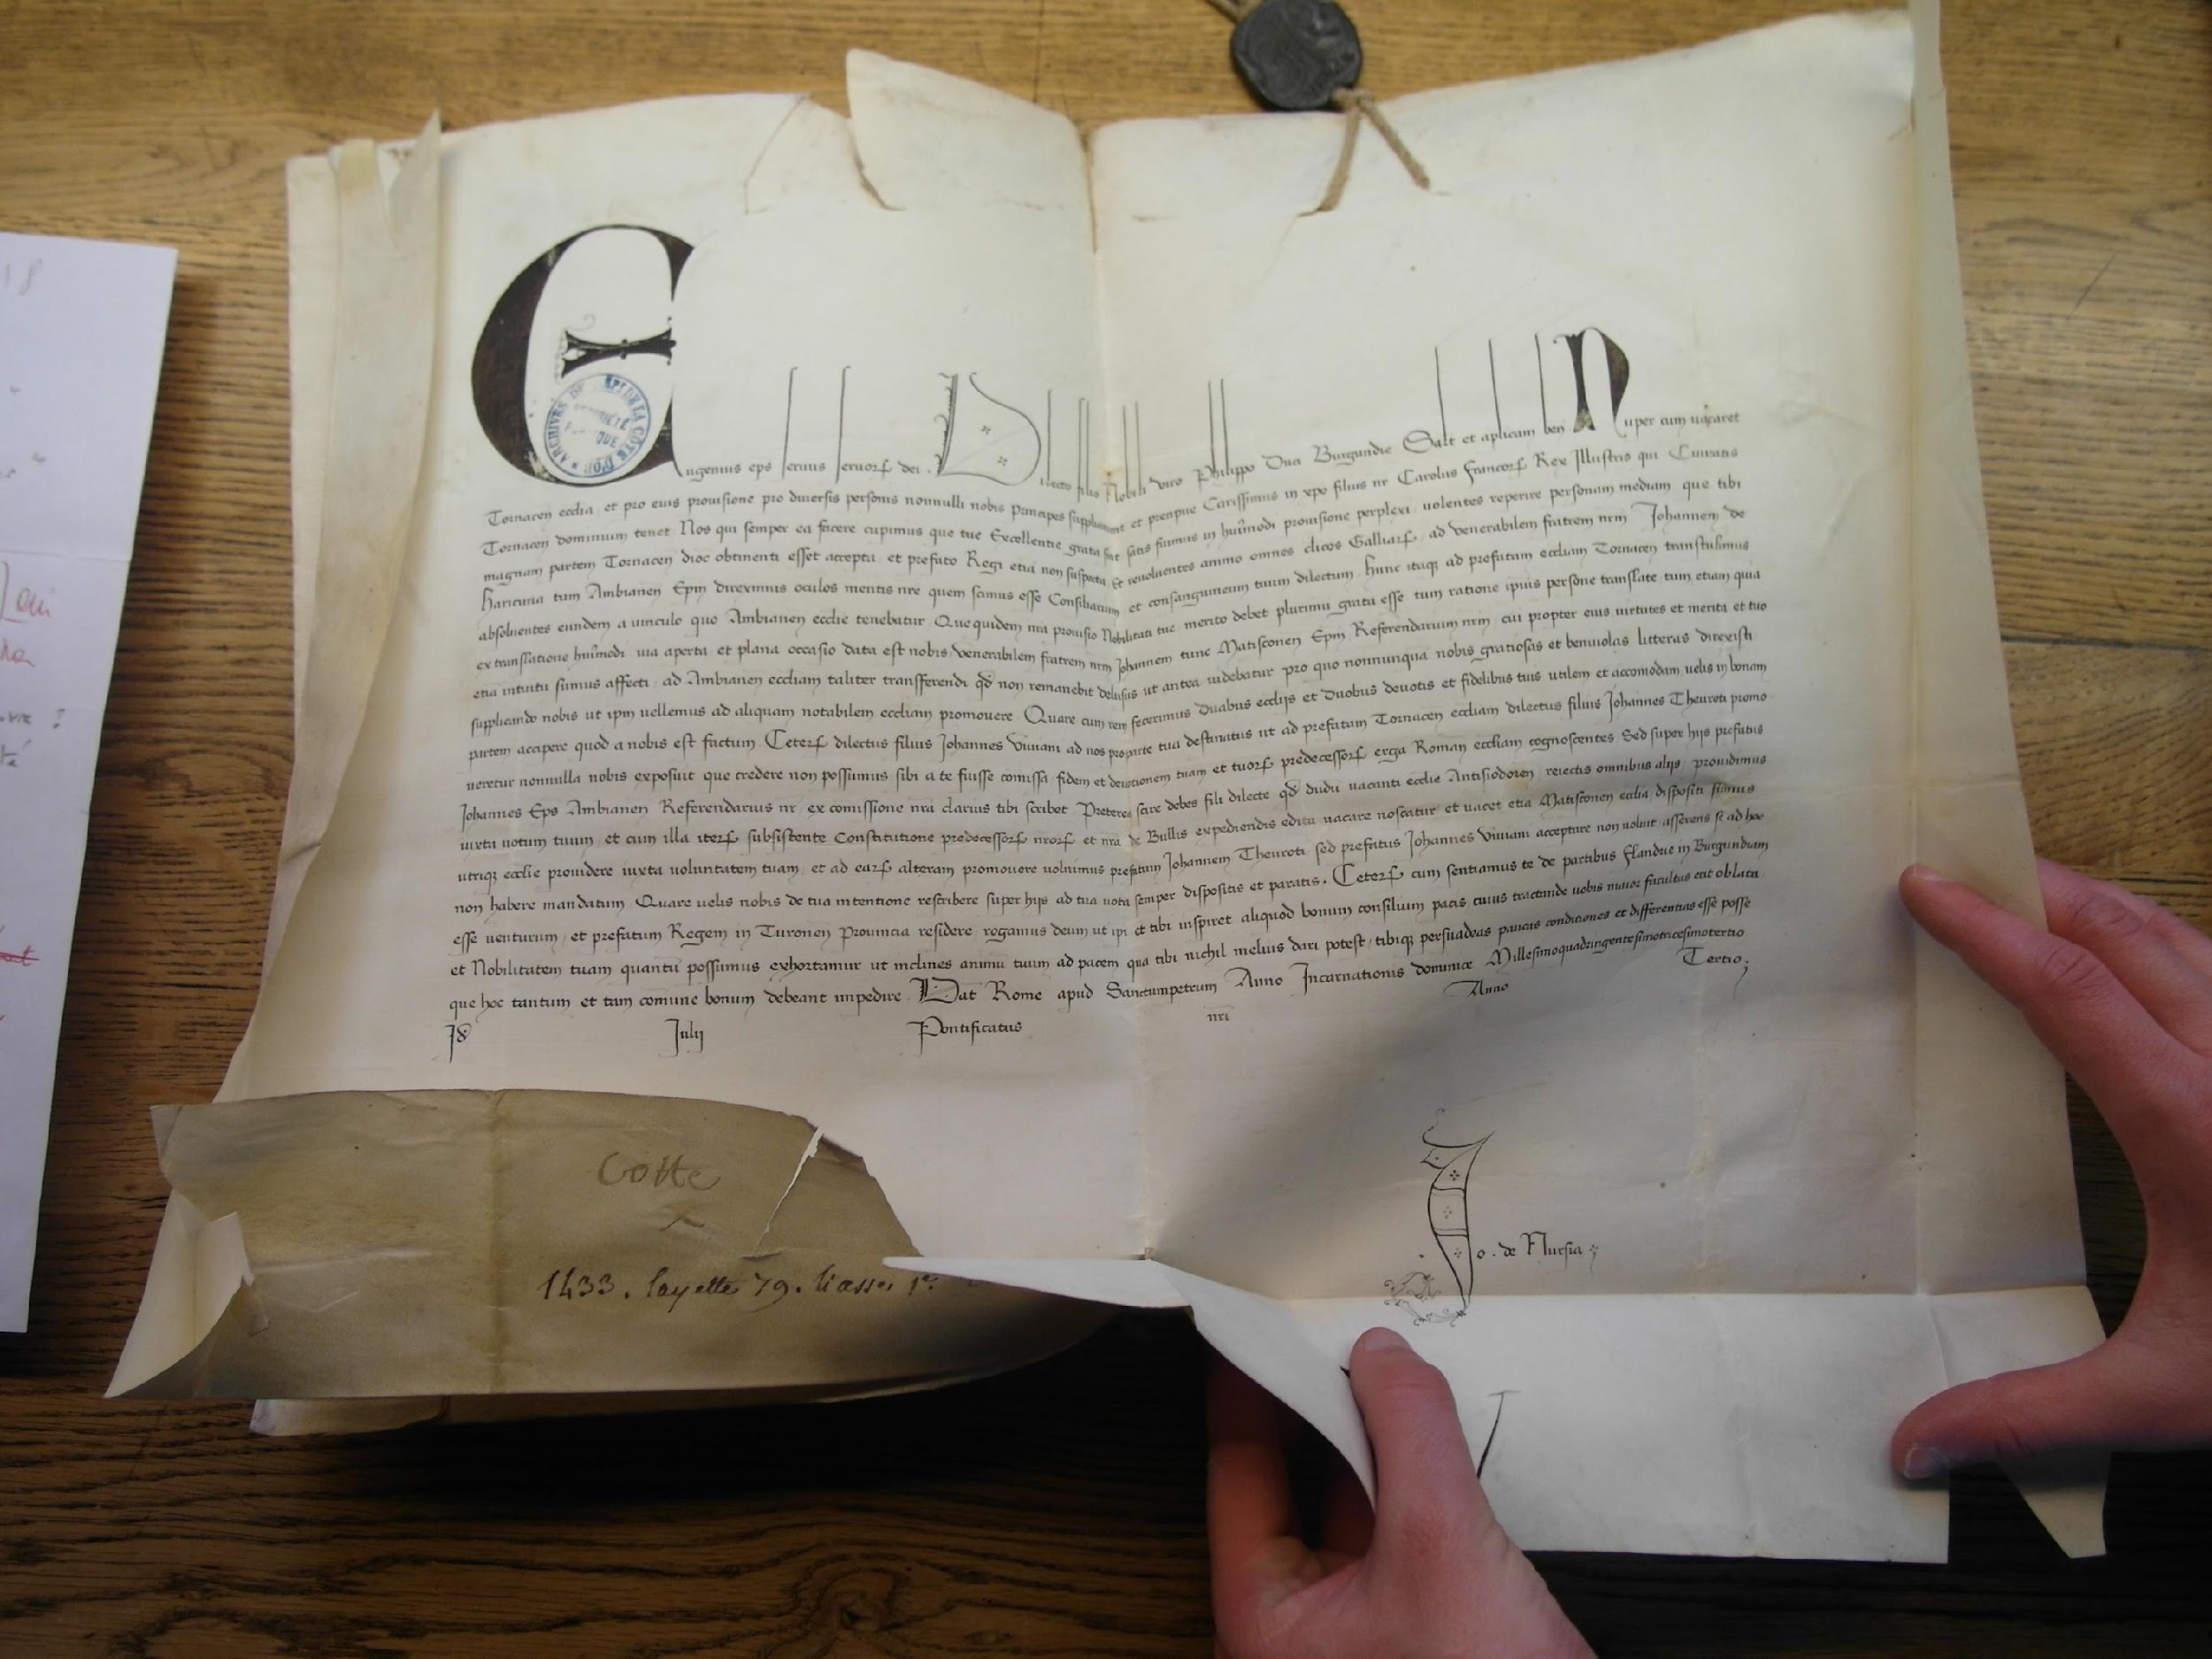 Eugenius eps seruus seruorꝝ dei. Dilecto filio Nobili viro Philippo Duci Burgundie Salt et aplicam ben Nuper cum uacaret
Tornacen ecclia, et pro eius prouisione pro diuersis personis nonnulli nobis Principes supplicarent et precipue Carissimus in xpo filius nr Carolus francorꝝ Rex Illustris qui Ciuitatis
Tornacen dominium tenet Nos qui semper ea facere cupimus que tue Excellentie grata sint satis fuimus in huiusmodi prouisione perplexi, uolentes reperire personam mediam que tibi
magnam partem Tornacen dioc obtinenti esset accepta et prefato Regi etia non suspecta Et reuoluentes animo omnes clicos Galliarꝝ, ad venerabilem fratrem nrm Johannem de
Haricuria tum Ambianen Epm direximus oculos mentis nre quem scimus esse Consiliarium et consanguineum tuum dilectum. Hunc itaqꝫ ad prefatam eccliam Tornacen transtulimus
absoluentes eundem a uinculo quo Ambianen ecclie tenebatur Que quidem nra prouisio Nobilitati tue merito debet plurimu grata esse tum ratione ipius persone translate tum etiam quia
ex translatione huiusmodi uia aperta et plana occasio data est nobis Venerabilem fratrem nrm Johannem tunc Matisconen Epm Referendarium nrm, cui propter eius uirtutes et merita et tuo
etia intuitu sumus affecti, ad Ambianen eccliam taliter transferendi qđ non remanebit delusus ut antea uidebatur pro quo nonnunqua nobis gratiosas et beniuolas litteras direxisti
supplicando nobis ut ipm uellemus ad aliquam notabilem eccliam promouere. Quare cum rem fecerimus Duabus ecclijs et Duobus deuotis et fidelibus tuis utilem et accomodam uelis in bonam
partem accipere quod a nobis est factum Ceterꝝ dilectus filius Johannes Viuiani ad nos pro parte tua destinatus ut ad prefatam Tornacen eccliam dilectus filius Johannes Theuroti promo
ueretur nonnulla nobis exposuit que credere non possumus sibi a te fuisse comissa, fidem et deuotionem tuam et tuorꝝ predecessorꝝ erga Roman eccliam cognoscentes Sed super hijs prefatus
Johannes Eps Ambianen Referendarius nr, ex comissione nra clarius tibi scribet. Preterea scire debes fili dilecte qđ dudu uacanti ecclie Antisiodoren, reiectis omnibus alijs, prouidimus
iuxta uotum tuum, et cum illa iterꝝ subsistente Constitutione predecessorꝝ nrorꝝ et nra de Bullis expediendis edita uacare noscatur, et uacet etia Matisconen ecclia, dispositi sumus
utriqꝫ ecclie prouidere iuxta uoluntatem tuam, et ad earꝝ alteram promouere uoluimus prefatum Johannem Theuroti, sed prefatus Johannes Viuiani acceptare non uoluit asserens se ad hoc
non habere mandatum. Quare uelis nobis de tua intentione rescribere super hijs ad tua uota semper dispositis et paratis. Ceterꝝ cum sentiamus te de partibus Flandrie in Burgundiam
esse uenturum, et prefatum Regem in Turonen Prouincia residere, rogamus deum ut ipi et tibi inspiret aliquod bonum consilium pacis cuius tractande uobis maior facultas erit oblata
et Nobilitatem tuam quantu possumus exhortamur ut inclines animu tuum ad pacem qua tibi nichil melius dari potest, tibiqꝫ persuadeas paucas conditiones et differentias esse posse
que hoc tantum et tam comune bonum debeant impedire Dat Rome apud Sanctumpetrum Anno Incarnationis dominice Millesimoquadringentesimotricesimotertio
Iđ Julij Pontificatus nri Anno Tertio
Jo. de Nursia
Cotte
1433. layette 79. liasse 1re
ARCHIVES DE LA COTE D'OR